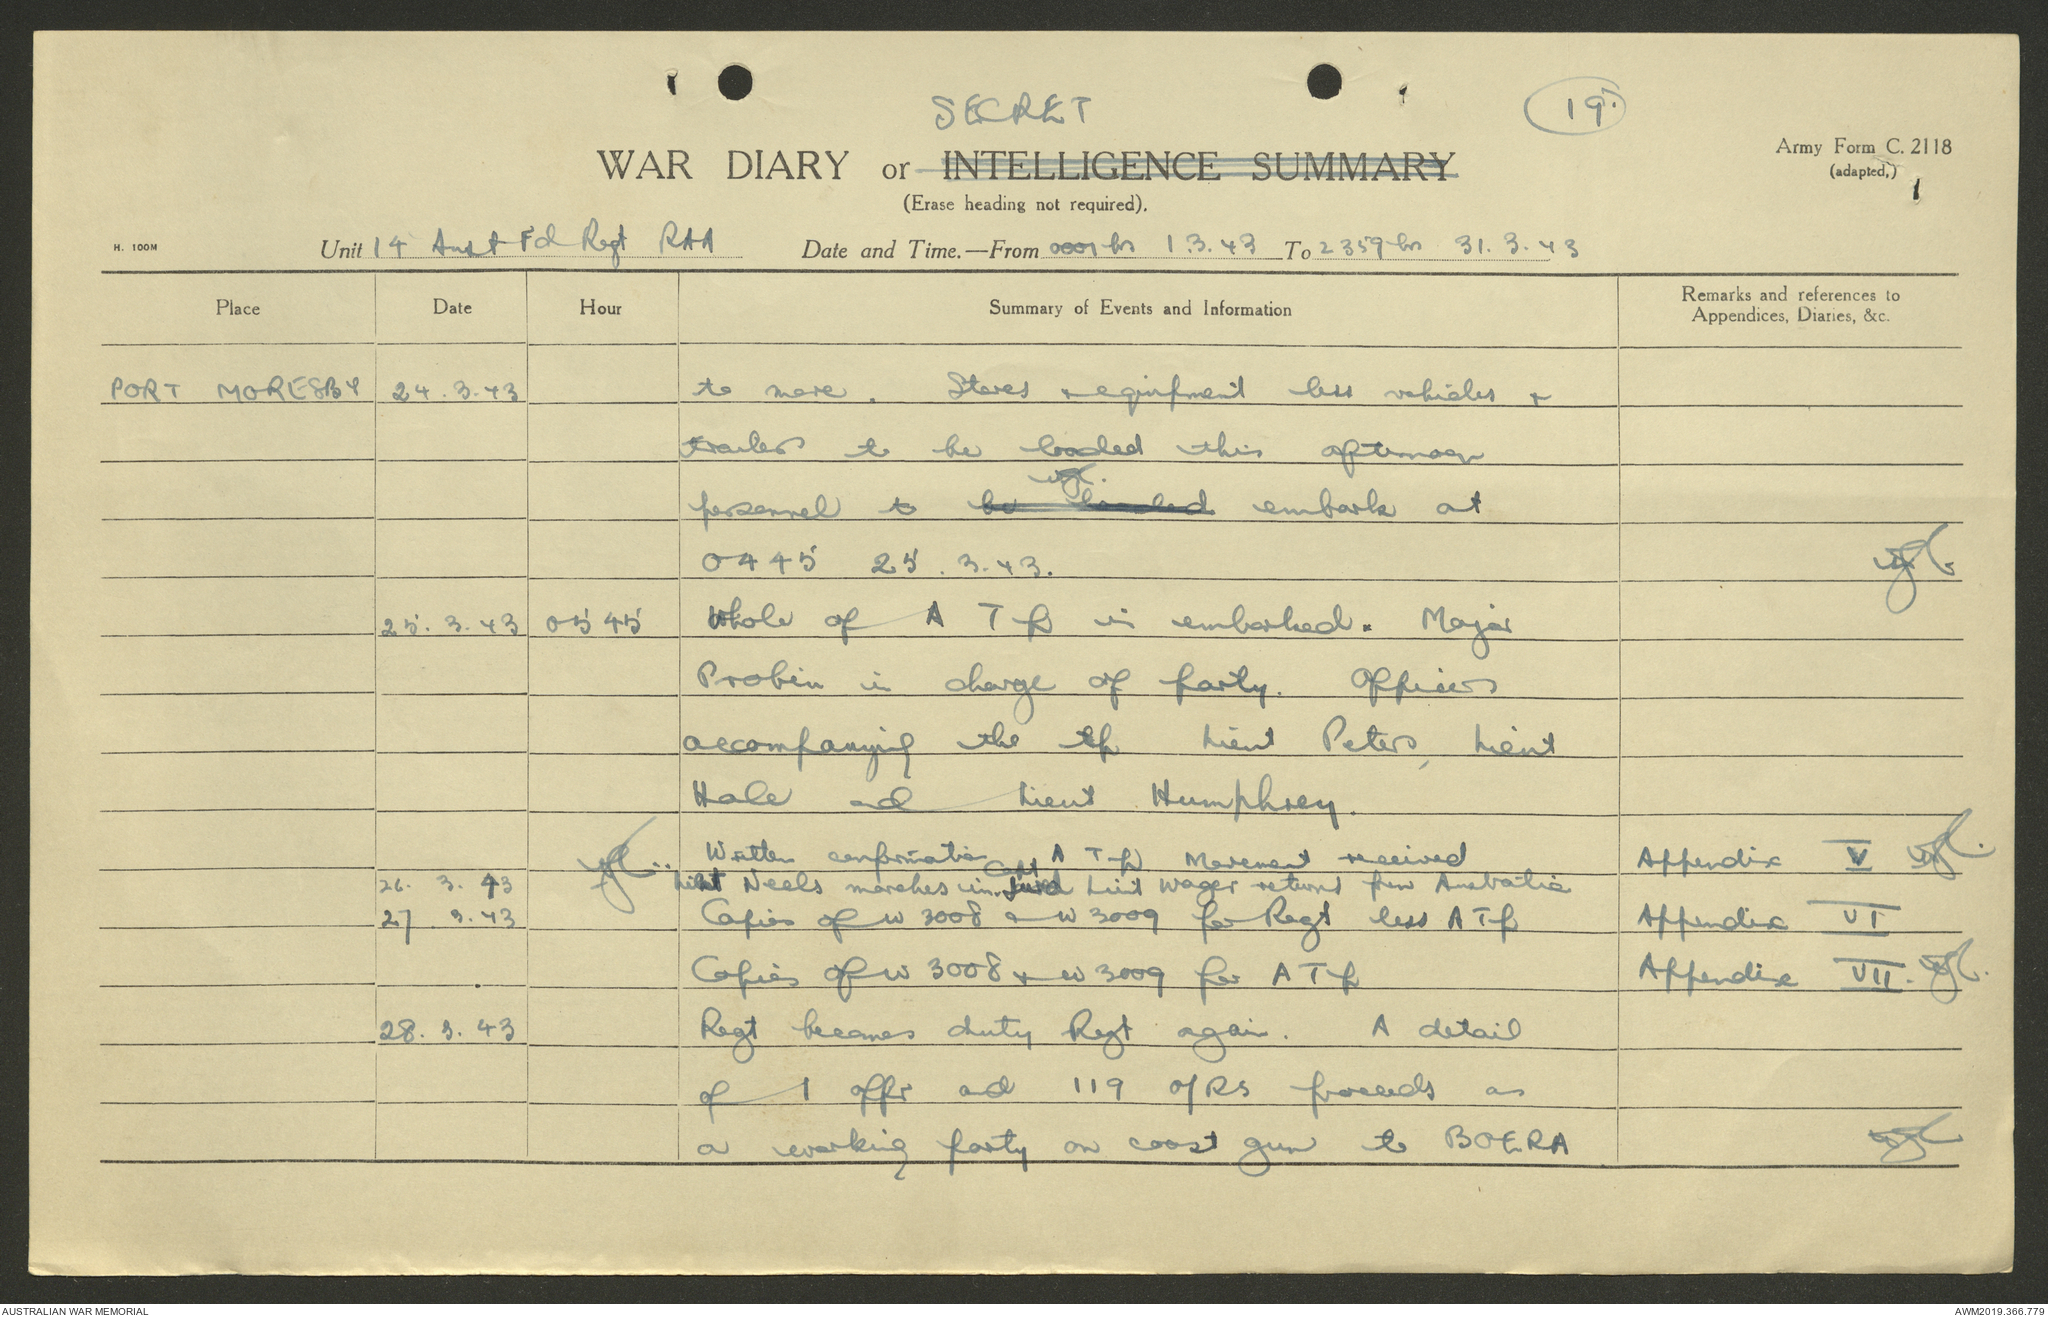 SECRET
19.
WAR DIARY or INTELLIGENCE SUMMARY
Army Form C. 2118
(adapted,)
1
(Erase heading not required).
H. 100M
Unit 14 Aust Fd Regt RAA Date and Time.—From 0001 hrs 1.3.43 To 2359 hrs 31.3.43
Place Date Hour Summary of Events and Information Remarks and references to Appendices, Diaries, &c.
PORT MORESBY 24.3.43 to move. Stores & equipment less vehicles &
trailers to be loaded this afternoon
personnel to be loaded embark at
0445 25.3.43.
25.3.43 0545 Whole of A Tp is embarked. Major
Probin in charge of party. Officers
accompanying the tp Lieut Peters, Lieut
Hale and Lieut Humphrey.
Written confirmation A Tp Movement received Appendix V
26.3.43 Lieut Neels marches in Capt Lieut Wager returns from Australia
27.3.43 Copies of W 3008 & W 3009 for Regt less A Tp Appendix VI
Copies of W 3008 & W 3009 for A Tp Appendix VII.
28.3.43 Regt becomes duty Regt again. A detail
of 1 offr and 119 O/RS proceeds as
a working party on coast gun to BOERA
AUSTRALIAN WAR MEMORIAL
AWM2019.366.779